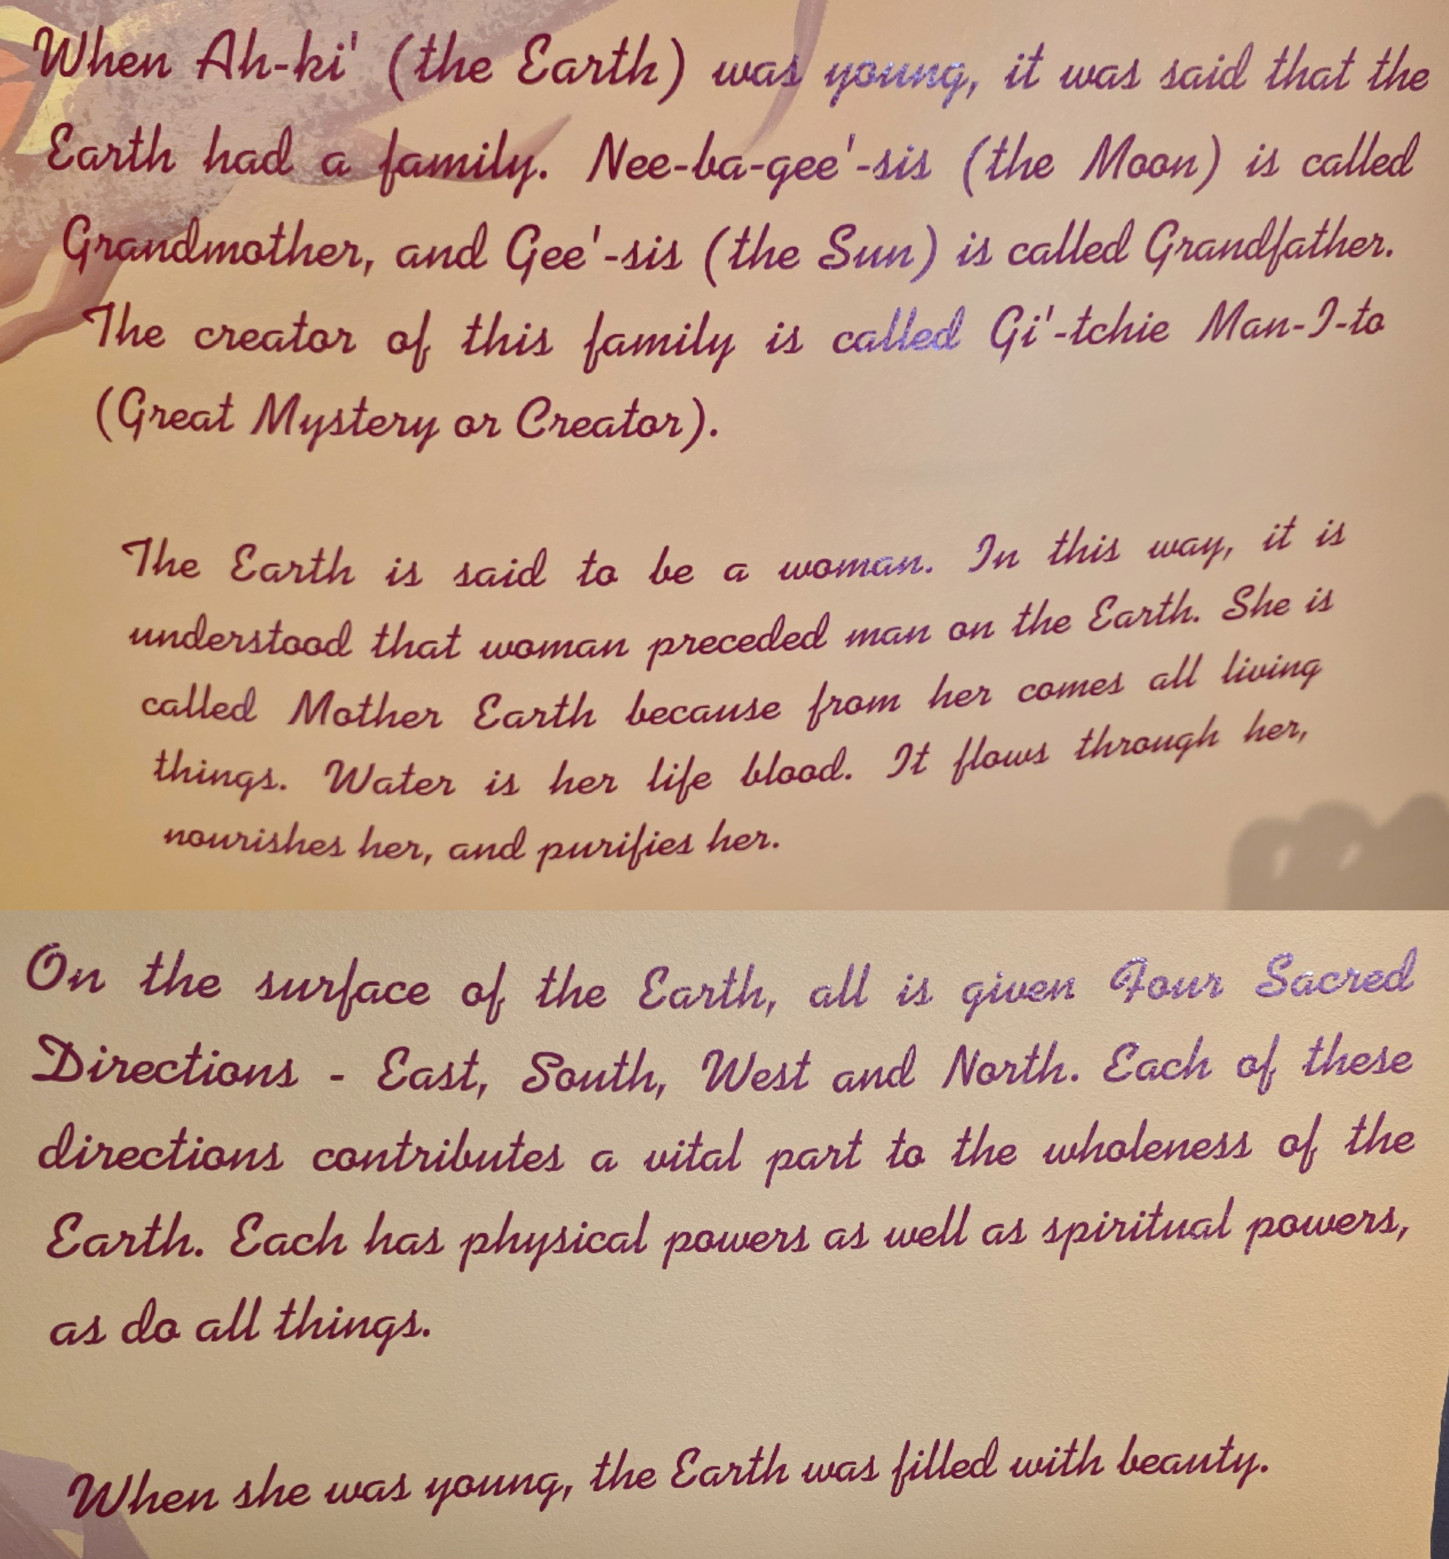 When Ah-ki' (the Earth) was young, it was said that the
Earth had a family. Nee-ba-gee'-sis (the Moon) is called
Grandmother, and Gee'-sis (the Sun) is called Grandfather.
The creator of this family is called Gi'-tchie Man-I-to
(Great Mystery or Creator).
The Earth is said to be a woman. In this way, it is
understood that woman preceded man on the Earth. She is
called Mother Earth because from her comes all living
things. Water is her life blood. It flows through her,
nourishes her, and purifies her.
On the surface of the Earth, all is given Four Sacred
Directions - East, South, West and North. Each of these
directions contributes a vital part to the wholeness of the
Earth. Each has physical powers as well as spiritual powers,
as do all things.
When she was young, the Earth was filled with beauty.